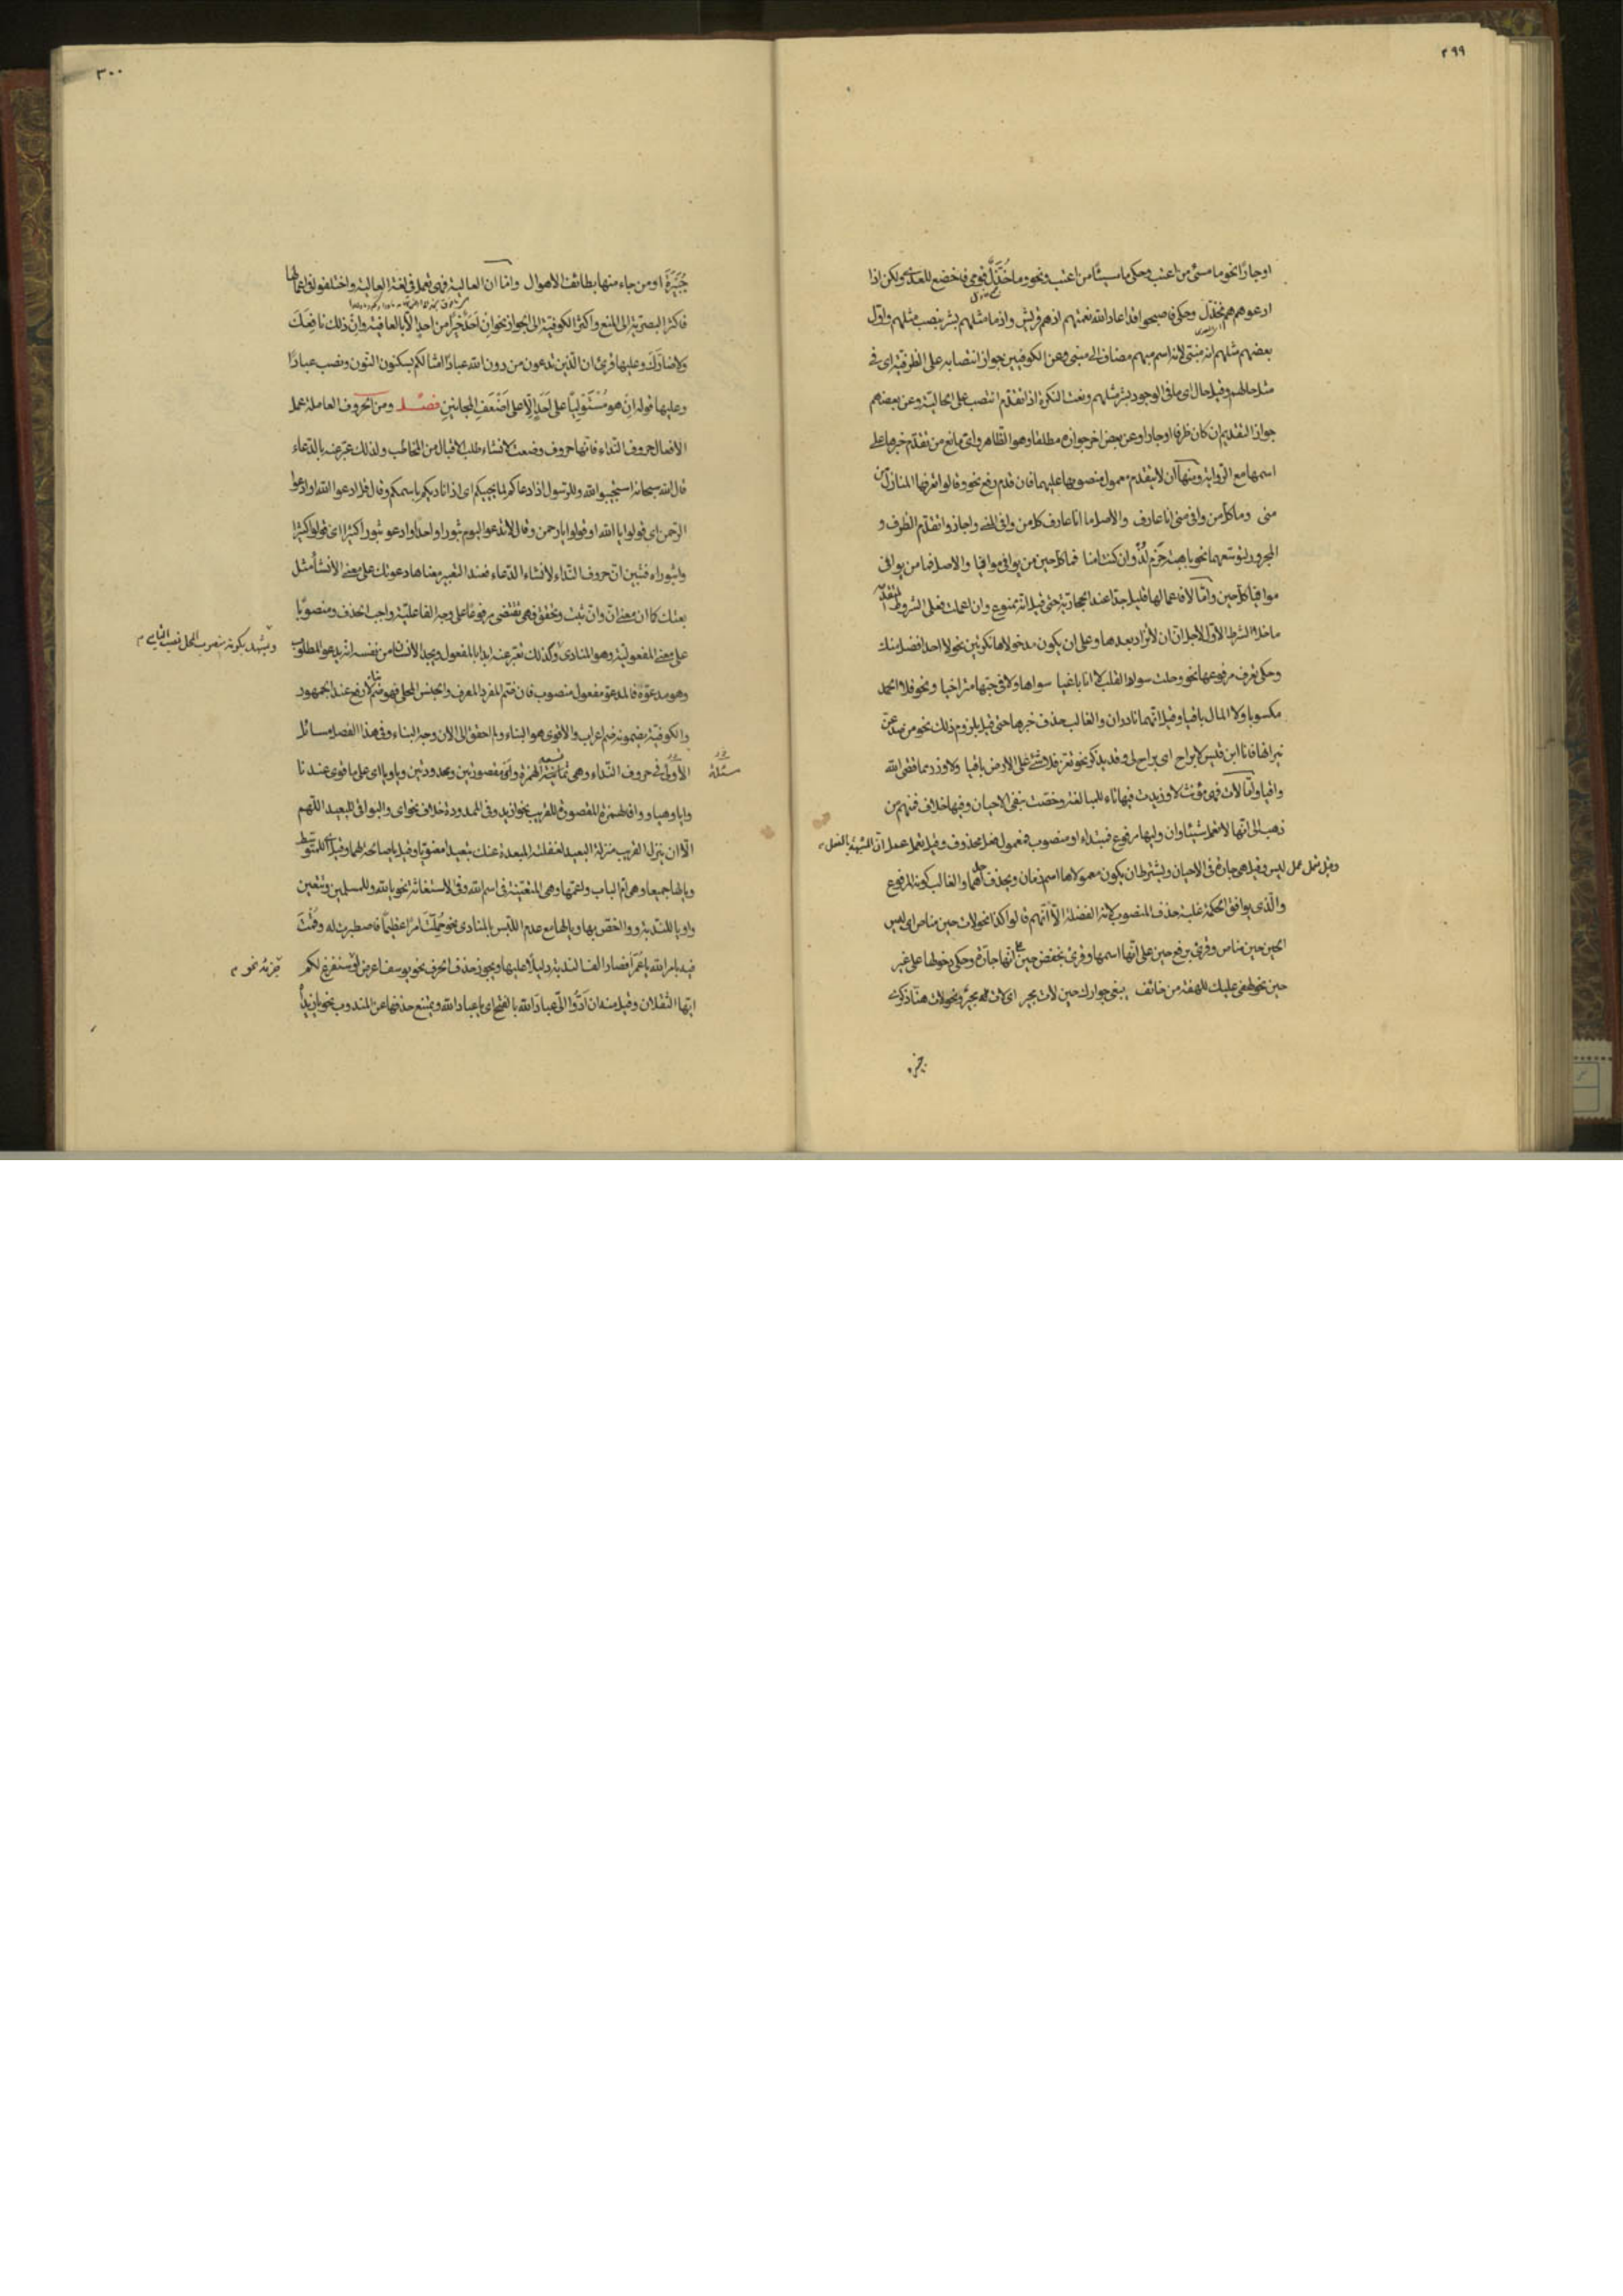 ٢٩٩
او جارًا نحو ما مسئ من اعتب وحكى ما مسيئًا من اعتب ونحو وما خُذَّلٌ قومى فاخضع للعدى ولكن اذا
ادعوهم هم مخذل وحكى فاصبحوا قد اعاد الله نعمتهم اذ هم قريش واذ ما مثلهم بشر بنصب مثلهم واوّل
بعضهم مثلهم انه مبنى لانه اسم مبهم مضاف الى مبنى وعن الكوفيين جواز انتصابه على الظرفية اى فى
مثل حالهم وقيل حال اى ما فى الوجود بشر مثلهم ونعت النكرة اذا تقدّم انتصب على الحالية وعن بعضهم
جواز التقديم ان كان ظرفا او جارا وعن بعض اخر جوازه مطلقا وهو الظاهر واى مانع من تقدّم خبرها على
اسمها مع الرواية ومنها ان لا يتقدم معمول منصوبها عليهما فان قدم رفع نحو وقالوا تعرفها المنازل من
منى وما كل من وافى منى انا عارف والاصل ما انا عارف كل من وافى منى واجازوا تقدّم الظرف و
المجرور لتوسعهما نحو باهبة حزم لُذْ وان كنت امنا فما كل حين من يوافى موافيا والاصل فما من يوافى
موافيا كل حين وامّا لا فاعمالها قليل جدّا عند الحجازية حتى قيل انه ممنوع وان اعملت فعلى الشروط المتقدّمة
ما خلا الشرط الاوّل لاجل ان ان لا تزاد بعدها وعلى ان يكون مدخولاها نكرتين نحو لا احد افضل منك
وحكى تعرف مرفوعها نحو وحلت سواد القلب لا انا باغيا سواها ولا فى حبها متراخيا ونحو فلا الحمد
مكسوبا ولا المال باقيا وقيل انهما نادران والغالب حذف خبرها حتى قيل بلزوم ذلك نحو من صد عن
نيرانها فانا ابن قيس لا براح اى براح لى وقد يذكر نحو تعزّ فلا شئ على الارض باقيا ولا وزر مما قضى الله
واقيا وامّا لات فهى مؤنث لا وزيدت فيها تاء للمبالغة وخصّت بنفى الاحيان وفيها خلاف فمنهم من
ذهب الى انها لا تعمل شيئا وان وليها مرفوع فمبتداء او منصوب فمعمول فعل محذوف وقيل تعمل عمل انّ المشبهة بالفعل
وقيل تعمل عمل ليس وقيل هى جارة فى الاحيان ويشترط ان يكون معمولاها اسم زمان ويحذف احدهما والغالب كونه المرفوع
والّذى يوافق الحكمة غلبة حذف المنصوب لانه الفضلة الّا انهم قالوا كذا نحو لات حين مناص اى ليس
الحين حين مناص وقرئ برفع حين على انها اسمها وقرئ بخفض حين على انها جارة وحكى دخولها على غير
حين نحو لهفى عليك للهفة من خائف يبغى جوارك حين لات مجير اى لات له مجير ونحو لات هنا ذكرى
جبيرة
٣٠٠
جُبَيْرَةَ او من جاء منها بطائف الاهوال وامّا ان العالية فهى تعمل فى لغة العالية واختلفوا فى اعمالها
فاكثر البصرية الى المنع واكثر الكوفية الى الجواز نحو ان احدٌ خيرًا من احدٍ الّا بالعافية وان ذلك نافعَكَ
ولا ضارّكَ وعليها قرئ ان الّذين تدعون من دون الله عبادًا امثالكم بسكون النون ونصب عبادًا
وعليها قوله ان هو مُسْتَوْلِيًا على احدٍ الّا على اضعف المجانين فصل ومن الحروف العاملة عمل
الافعال حروف النداء فانها حروف وضعت لانشاء طلب الاقبال من المخاطب ولذلك عبّر عنه بالدعاء
قال الله سبحانه استجيبوا لله وللرسول اذا دعاكم لما يحييكم اى اذا ناديكم باسمكم وقال قل ادعوا الله او ادعوا
الرّحمن اى قولوا يا الله او قولوا يا رحمن وقال لا تدعوا اليوم ثبورا واحدًا وادعو ثبورا كثيرا اى قولوا كثيرا
واثبوراه فتبين انّ حروف النداء لانشاء الدعاء فعند التعبير معناها دعوتك على معنى الانشاء مثل
بعتك كما ان معنى انّ وانّ ثبت وتحقق فهى تقتضى مرفوعًا على وجه الفاعلية واجب الحذف ومنصوبًا
على معنى المفعولية وهو المنادى وكذلك تعبّر عنه ابدا بالمفعول ويجد الانسان من نفسه انه يدعو المطلوب
ويشهد بكونه منصوب المحل نصب التابع م
وهو مدعوّه فالمدعو مفعول منصوب فان ضمّ المفرد المعرف والجنس المحلى فهو ضم بناء لا رفع عند الجمهور
والكوفية يضمونه ضم اعراب والاقوى هو البناء ولم احقق الى الان وجه البناء وفى هذا الفصل مسائل
مسئلة
الاُولى فى حروف النداء وهى ثمانية الهمزة واَى مقصورتين وممدودتين ويا ويا اى على ما قوى عندنا
وايا وهيا ووا فالهمزة المقصورة للقريب نحو ازيد وفى الممدودة خلاف نحو اى والبواقى للبعيد اللهم
الّا ان ينزل القريب منزلة البعيد لغفلته المبعدة عنك بتعيدا معنويّا وقيل يا صالحة لهما وقيل اى للمتوسط
ويا لها جميعا وهى ام الباب واعمّها وهى المتعيّنة فى اسم الله وفى الاستغاثة نحو يا لله وللمسلمين وتتعين
وا ويا للندبة ووا اخصّ بها ويا لها مع عدم اللبس بالمنادى نحو حُمِّلْتَ امرًا عظيمًا فاصطبرت له وقُمْتَ
فيه بامر الله يا عُمَرا فصار الف الندبة دليلًا عليها ويجوز حذف الحرف نحو يوسف اعرض و سنفرغ لكم
ايّها الثقلان وقيل منه ان ادّوا الىّ عبادَ الله بالفتح اى يا عباد الله ويمتنع حذفها عن المندوب نحو يا زيداه